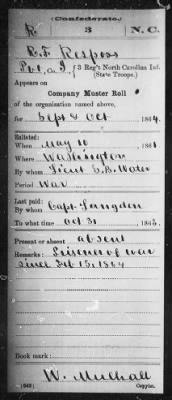 (Confederate)
R 3 N.C.
R. F. Respass
Pvt, Co. I, 3 Reg't North Carolina Inf.
(State Troops.)
Appears on
Company Muster Roll
of the organization named above,
for Sept & Oct, 1864.
Enlisted:
When May 10, 1861
Where Washington
By whom Lieut
Period War
Last paid:
By whom Capt. Langdon
To what time Oct 31, 1863.
Present or absent absent
Remarks: Prisoner of war
since Feb 15, 1864
Book mark:
W. Mulhall
(642) Copyist.